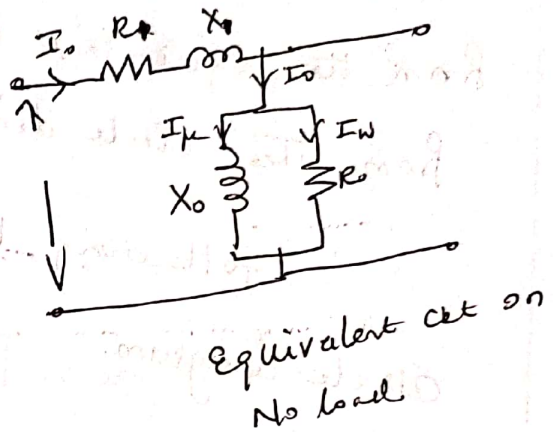 I₀ R₁ X₁
I₀
Iμ Iw
X₀ R₀
Equivalent ckt on
No load